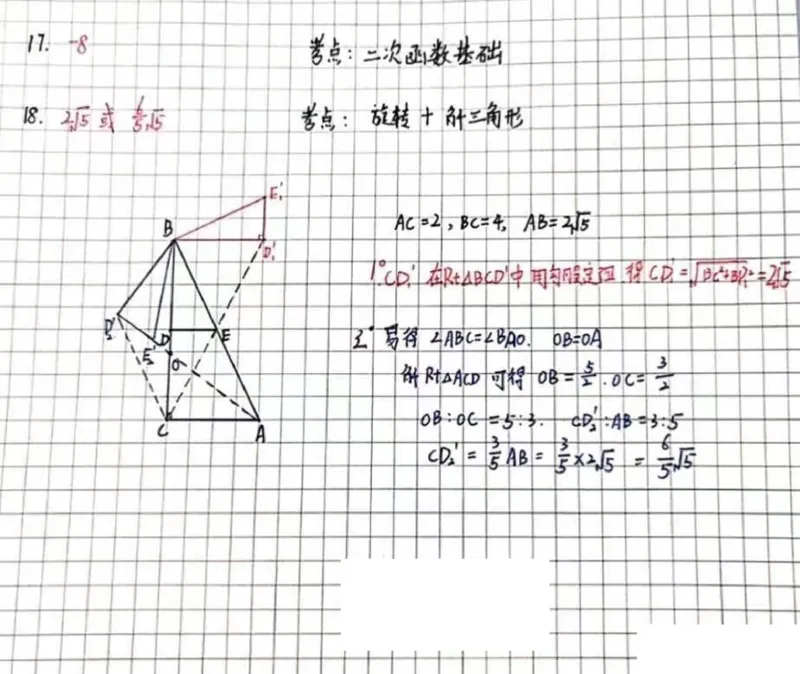 17. -8 考点: 二次函数基础
18. 2√5 或 6/5√5 考点: 旋转 + 解三角形
E₁'
B
D₁'
AC=2, BC=4, AB=2√5
1° CD₁' 在Rt△BCD'中用勾股定理 得 CD₁'=√BC²+BD₁'²=2√5
D₂' E₂' D E
O
2° 易得 ∠ABC=∠BAO. OB=OA
解Rt△ACO 可得 OB=5/2. OC=3/2
OB:OC=5:3. CD₂':AB=3:5
C A
CD₂'=3/5AB=3/5×2√5=6/5√5